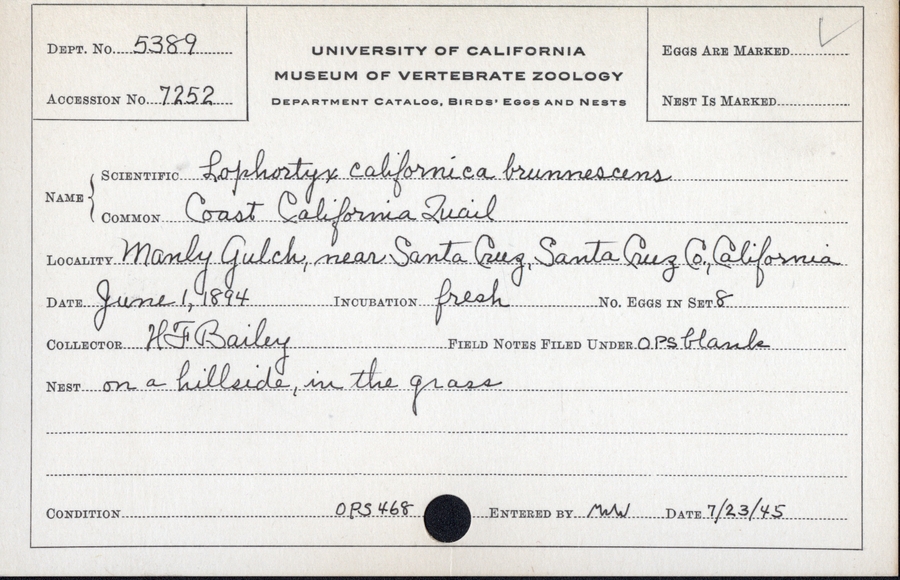 DEPT. NO. 5389
ACCESSION NO. 7252
UNIVERSITY OF CALIFORNIA
MUSEUM OF VERTEBRATE ZOOLOGY
DEPARTMENT CATALOG, BIRDS' EGGS AND NESTS
EGGS ARE MARKED
NEST IS MARKED
NAME
SCIENTIFIC Lophortyx californica brunnescens
COMMON Coast California Quail
LOCALITY Manly Gulch, near Santa Cruz, Santa Cruz Co., California
DATE June 1, 1894 INCUBATION fresh NO. EGGS IN SET 8
COLLECTOR H F Bailey FIELD NOTES FILED UNDER OPS blank
NEST on a hillside, in the grass
CONDITION OPS 468 ENTERED BY MWW DATE 7/23/45